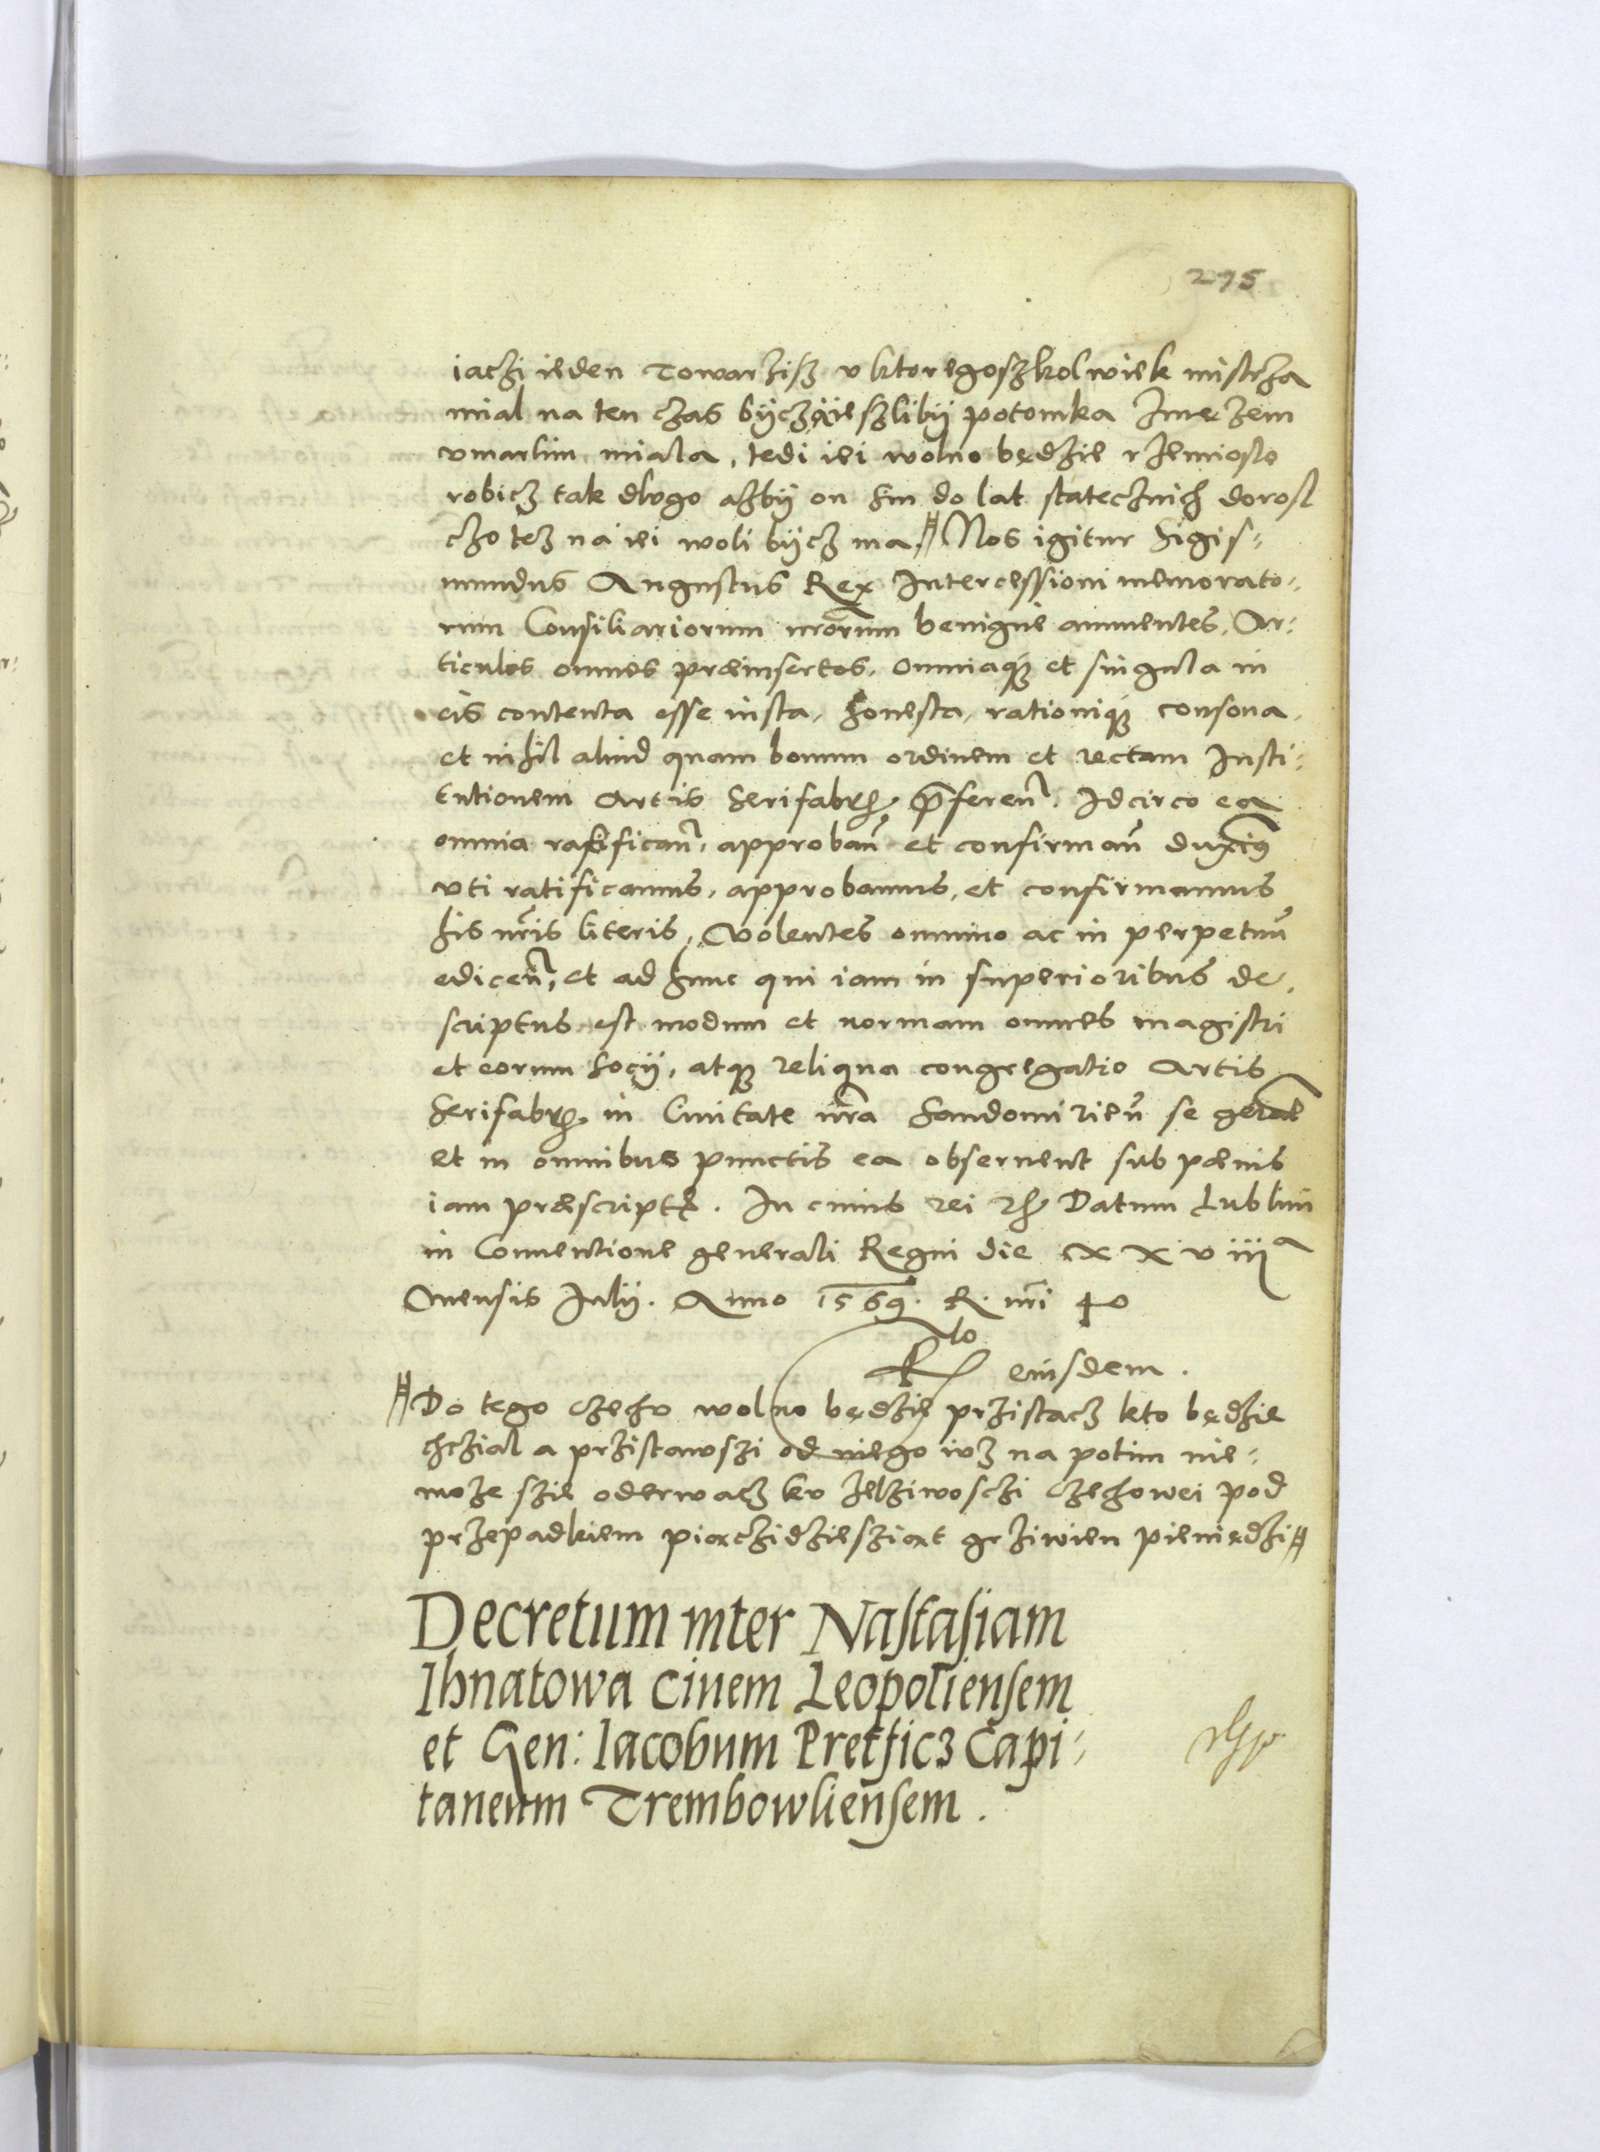 295
iaczi ieden Towarzisz v ktoregoszkolwiek mistrza
mial na ten czas bÿcz, ieszlibÿ potomka z mężem
vmarlim miala, tedi iei wolno będzie rzemioslo
robicz tak dlugo azbÿ on sin do lat statecznich dorosl
czo tez na iei woli bÿcz ma. Nos igitur Sigis:
mundus Augustus Rex Intercessioni memorato:
rum Consiliariorum nrorum benigne annuentes, Ar:
ticulos omnes præinsertos, omniaq et singula in
eis contenta esse iusta, honesta, rationiq consona,
et nihil aliud quam bonum ordinem et rectam Insti:
tutionem Artis Serifabr præferen. Idcirco ea
omnia ratifican, approban et confirman duxim
vti ratificamus, approbamus, et confirmamus
his nris literis, Volentes omnino ac in perpetuu
edicen, et ad hunc qui iam in superioribus de,
scriptus est modum et normam omnes magistri
et eorum Socÿ, atq reliqua congregatio Artis
Serifabr in Ciuitate nra Sandomirien se gerat
et in omnibus punctis ea obseruent sub pænis
iam præscript. In cuius rei Datum Lublini
in Conuentione generali Regni die xxviiia
Mensis Julÿ. Anno 1569. R. nri 40
Rto eiusdem.
Do tego czechv wolno będzie przistacz kto będzie
chczial a przistawszi od niego ivz na potim nie:
moze szie oderwacz kv zelziwosczi czechowei pod
przepadkiem piaczidziesziat grziwien pieniędzi
Decretum inter Nastasiam
Ihnatowa Ciuem Leopoliensem
et Gen: Iacobum Pretficz Capi:
taneum Trembowliensem.